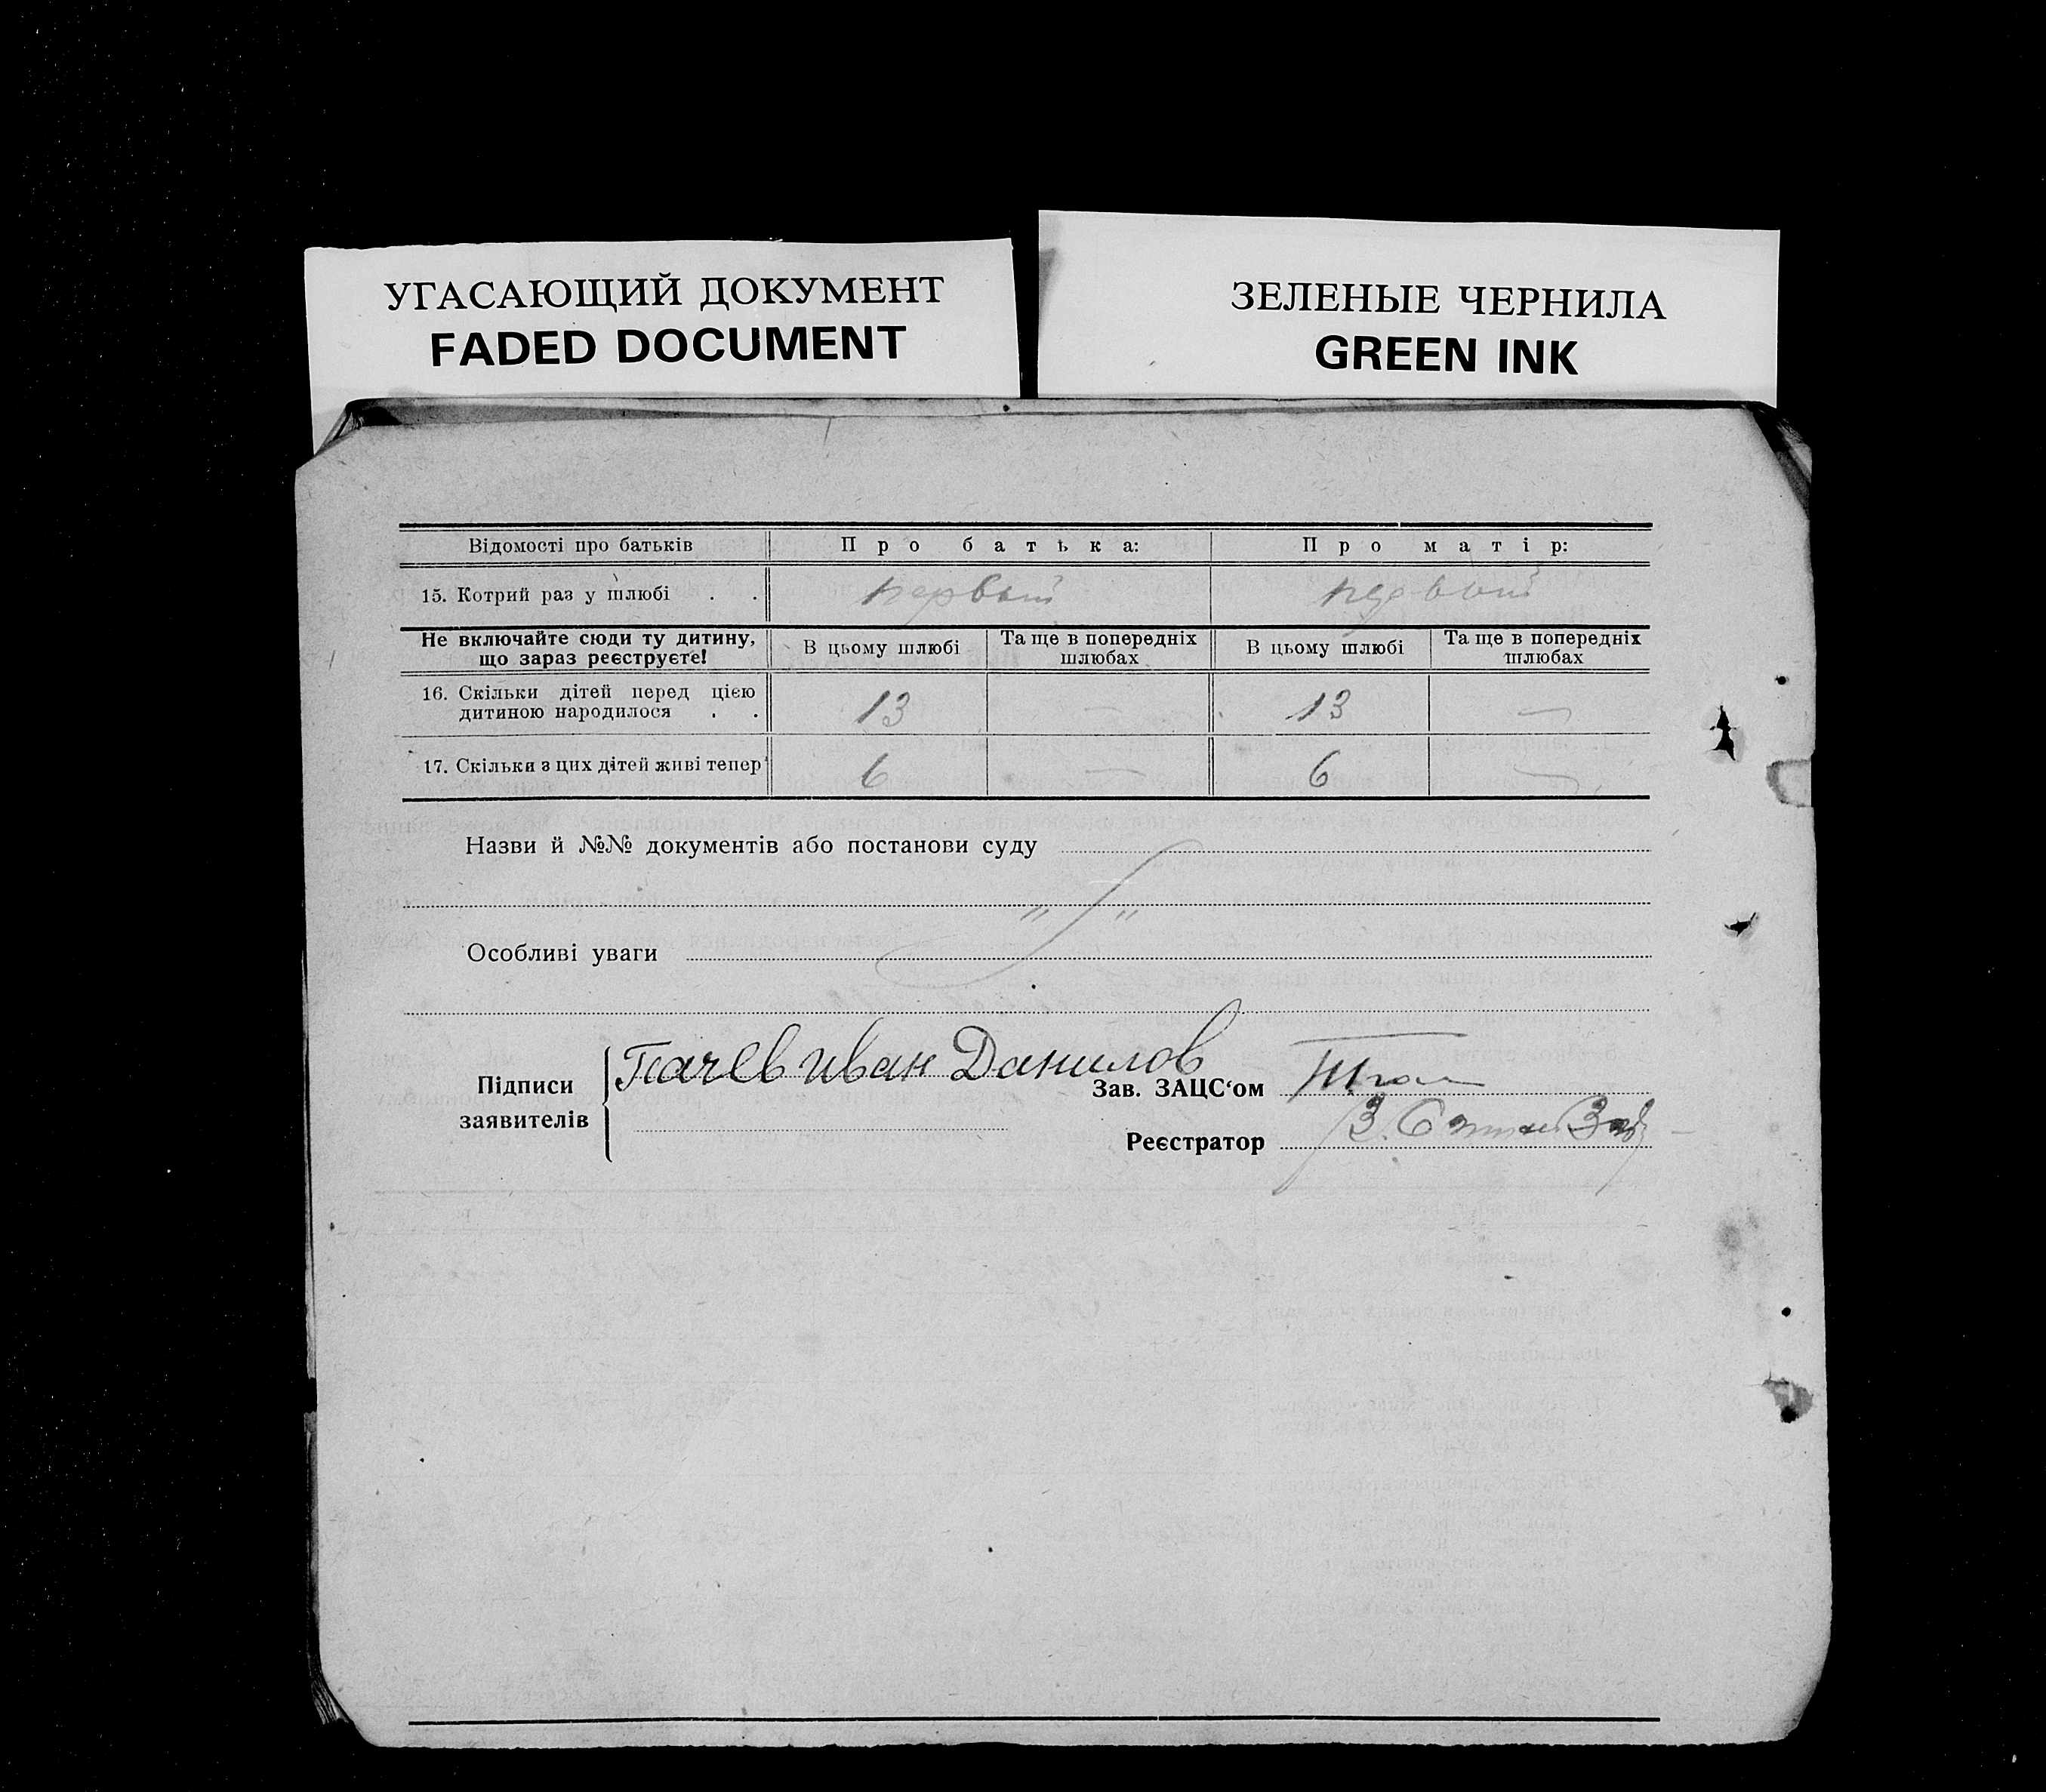 УГАСАЮЩИЙ ДОКУМЕНТ
FADED DOCUMENT
ЗЕЛЕНЫЕ ЧЕРНИЛА
GREEN INK
Відомості про батьків Про батька: Про матір:
15. Котрий раз у шлюбі . . первый первый
Не включайте сюди ту дитину, що зараз реєструєте! В цьому шлюбі Та ще в попередніх шлюбах В цьому шлюбі Та ще в попередніх шлюбах
16. Скільки дітей перед цією дитиною народилося . . 13 — 13 —
17. Скільки з цих дітей живі тепер 6 — 6 —
Назви й №№ документів або постанови суду
" "
Особливі уваги
Підписи заявителів Иван Данилов
Зав. ЗАЦС'ом
Реєстратор